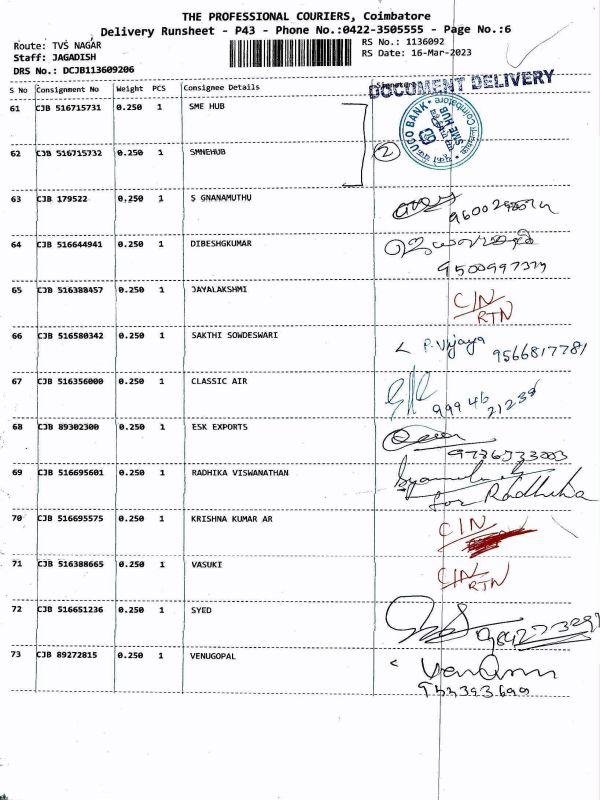 THE PROFESSIONAL COURIERS, Coimbatore
Delivery Runsheet - P43 - Phone No.:0422-3505555 - Page No.:6
Route: TVS NAGAR
Staff: JAGADISH
DRS No.: DCJB113609206
RS No.: 1136092
RS Date: 16-Mar-2023
S No Consignment No Weight PCS Consignee Details
DOCUMENT DELIVERY
61 CJB 516715731 0.250 1 SME HUB
UCO BANK
SME HUB
Coimbatore
62 CJB 516715732 0.250 1 SMNEHUB
2
63 CJB 179522 0.250 1 S GNANAMUTHU
64 CJB 516644941 0.250 1 DIBESHGKUMAR
65 CJB 516388457 0.250 1 JAYALAKSHMI
C/N
RTN
66 CJB 516580342 0.250 1 SAKTHI SOWDESWARI P. Vijaya 9566817781
67 CJB 516356000 0.250 1 CLASSIC AIR
99946
21235
68 CJB 89302300 0.250 1 ESK EXPORTS
69 CJB 516695601 0.250 1 RADHIKA VISWANATHAN
for Radhika
70 CJB 516695575 0.250 1 KRISHNA KUMAR AR C/N
71 CJB 516388665 0.250 1 VASUKI C/N
RTN
72 CJB 516651236 0.250 1 SYED
73 CJB 89272815 0.250 1 VENUGOPAL